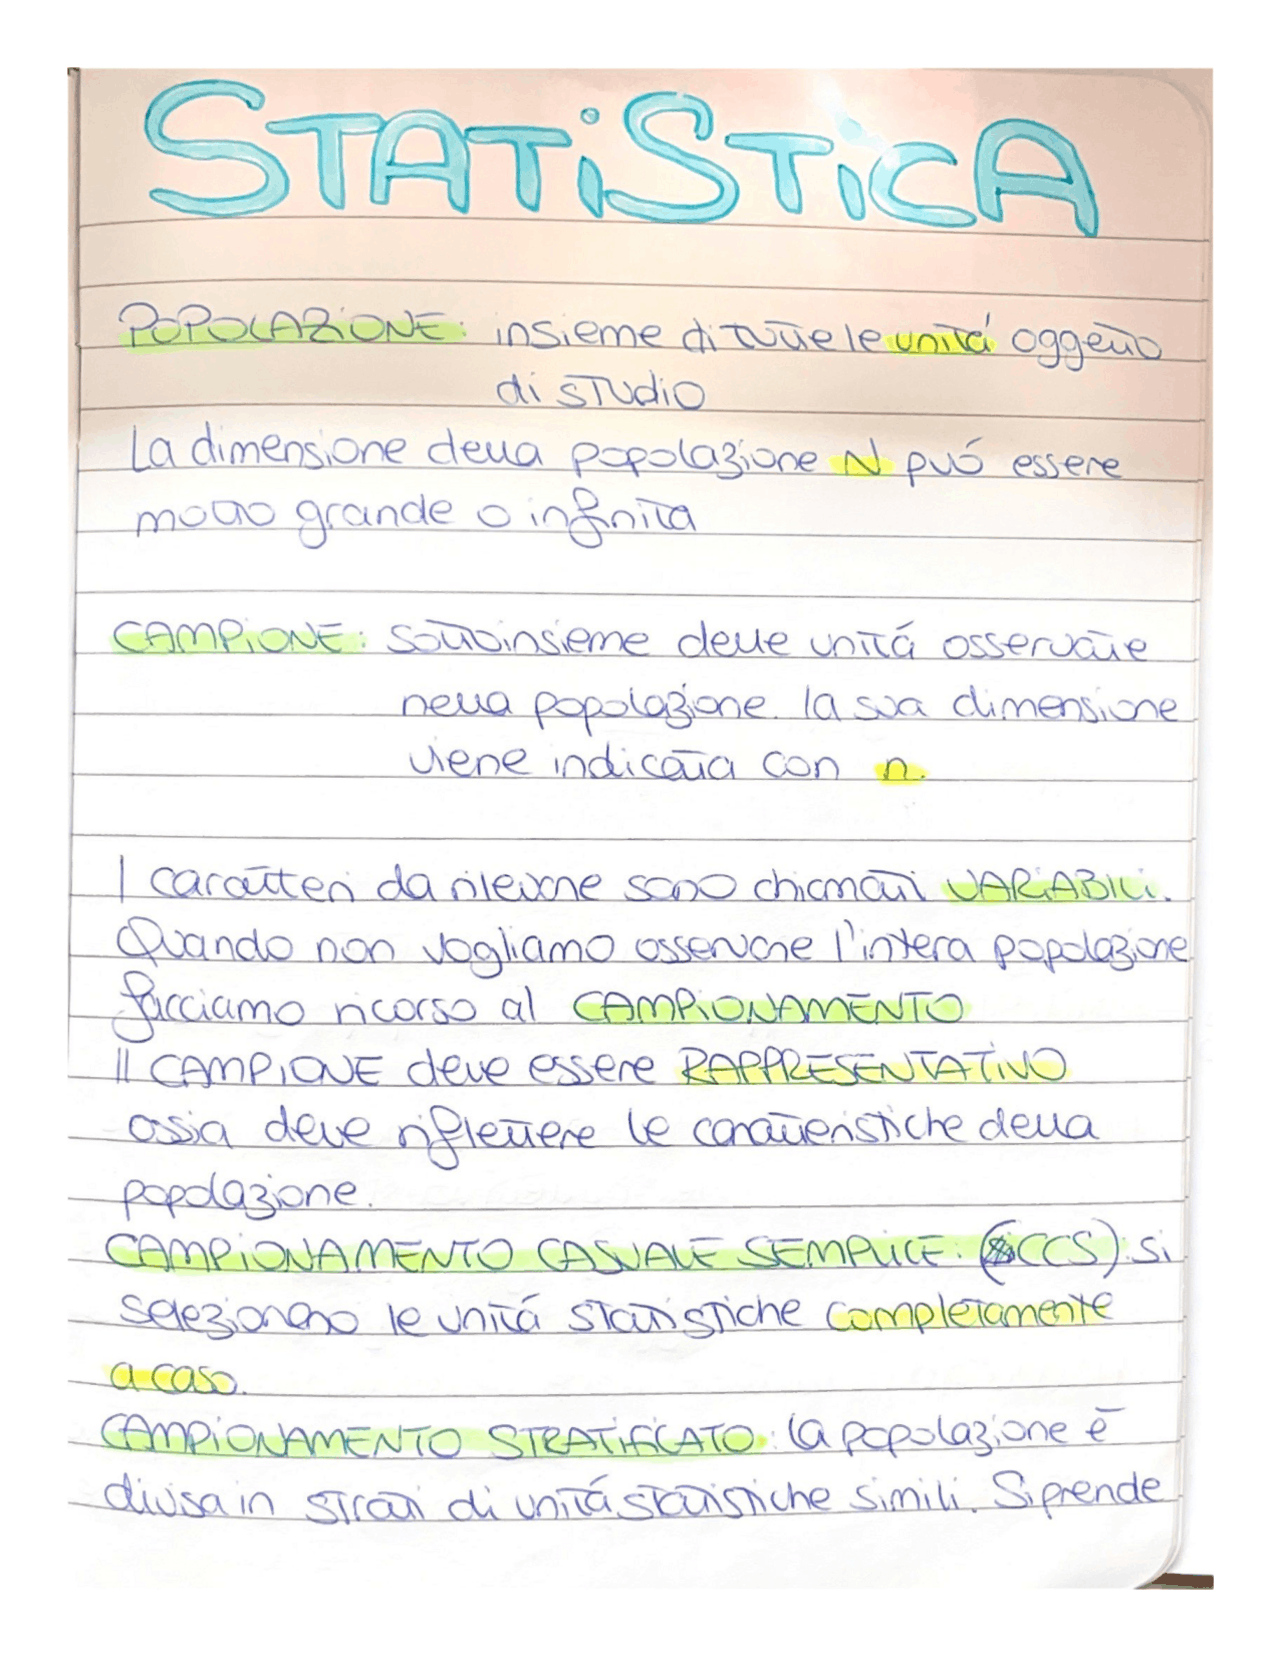 STATiSTiCA
POPOLAZIONE: insieme di tutte le unitá oggetto
di studio
La dimensione della popolazione N puó essere
molto grande o infinita
CAMPIONE: Sottoinsieme delle unitá osservate
nella popolazione. la sua dimensione
viene indicata con n.
I caratteri da rilevare sono chiamati VARIABILI.
Quando non vogliamo osservare l'intera popolazione
facciamo ricorso al CAMPIONAMENTO
Il CAMPIONE deve essere RAPPRESENTATIVO
ossia deve riflettere le caratteristiche della
popolazione.
CAMPIONAMENTO CASUALE SEMPLICE: (CCS): si
selezionano le unitá statistiche completamente
a caso.
CAMPIONAMENTO STRATIFICATO: la popolazione é
divisa in strati di unitá statistiche simili. Si prende